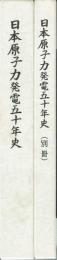 日本原子力発電五十年史
日本原子力発電五十年史(別冊)